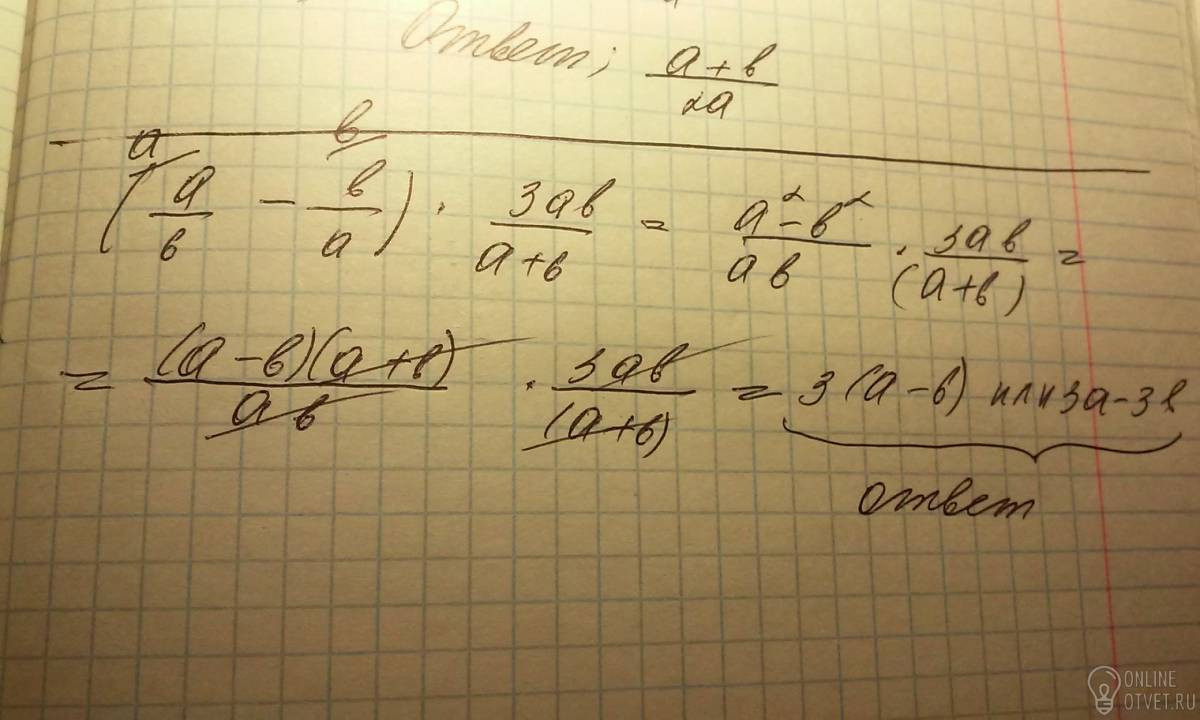 Ответ; (a+b)/(2a)
(a/b - b/a) · 3ab/(a+b) = (a²-b²)/(ab) · 3ab/(a+b) =
= (a-b)(a+b)/(ab) · 3ab/(a+b) = 3(a-b) или 3a-3b
ответ
ONLINE
OTVET.RU